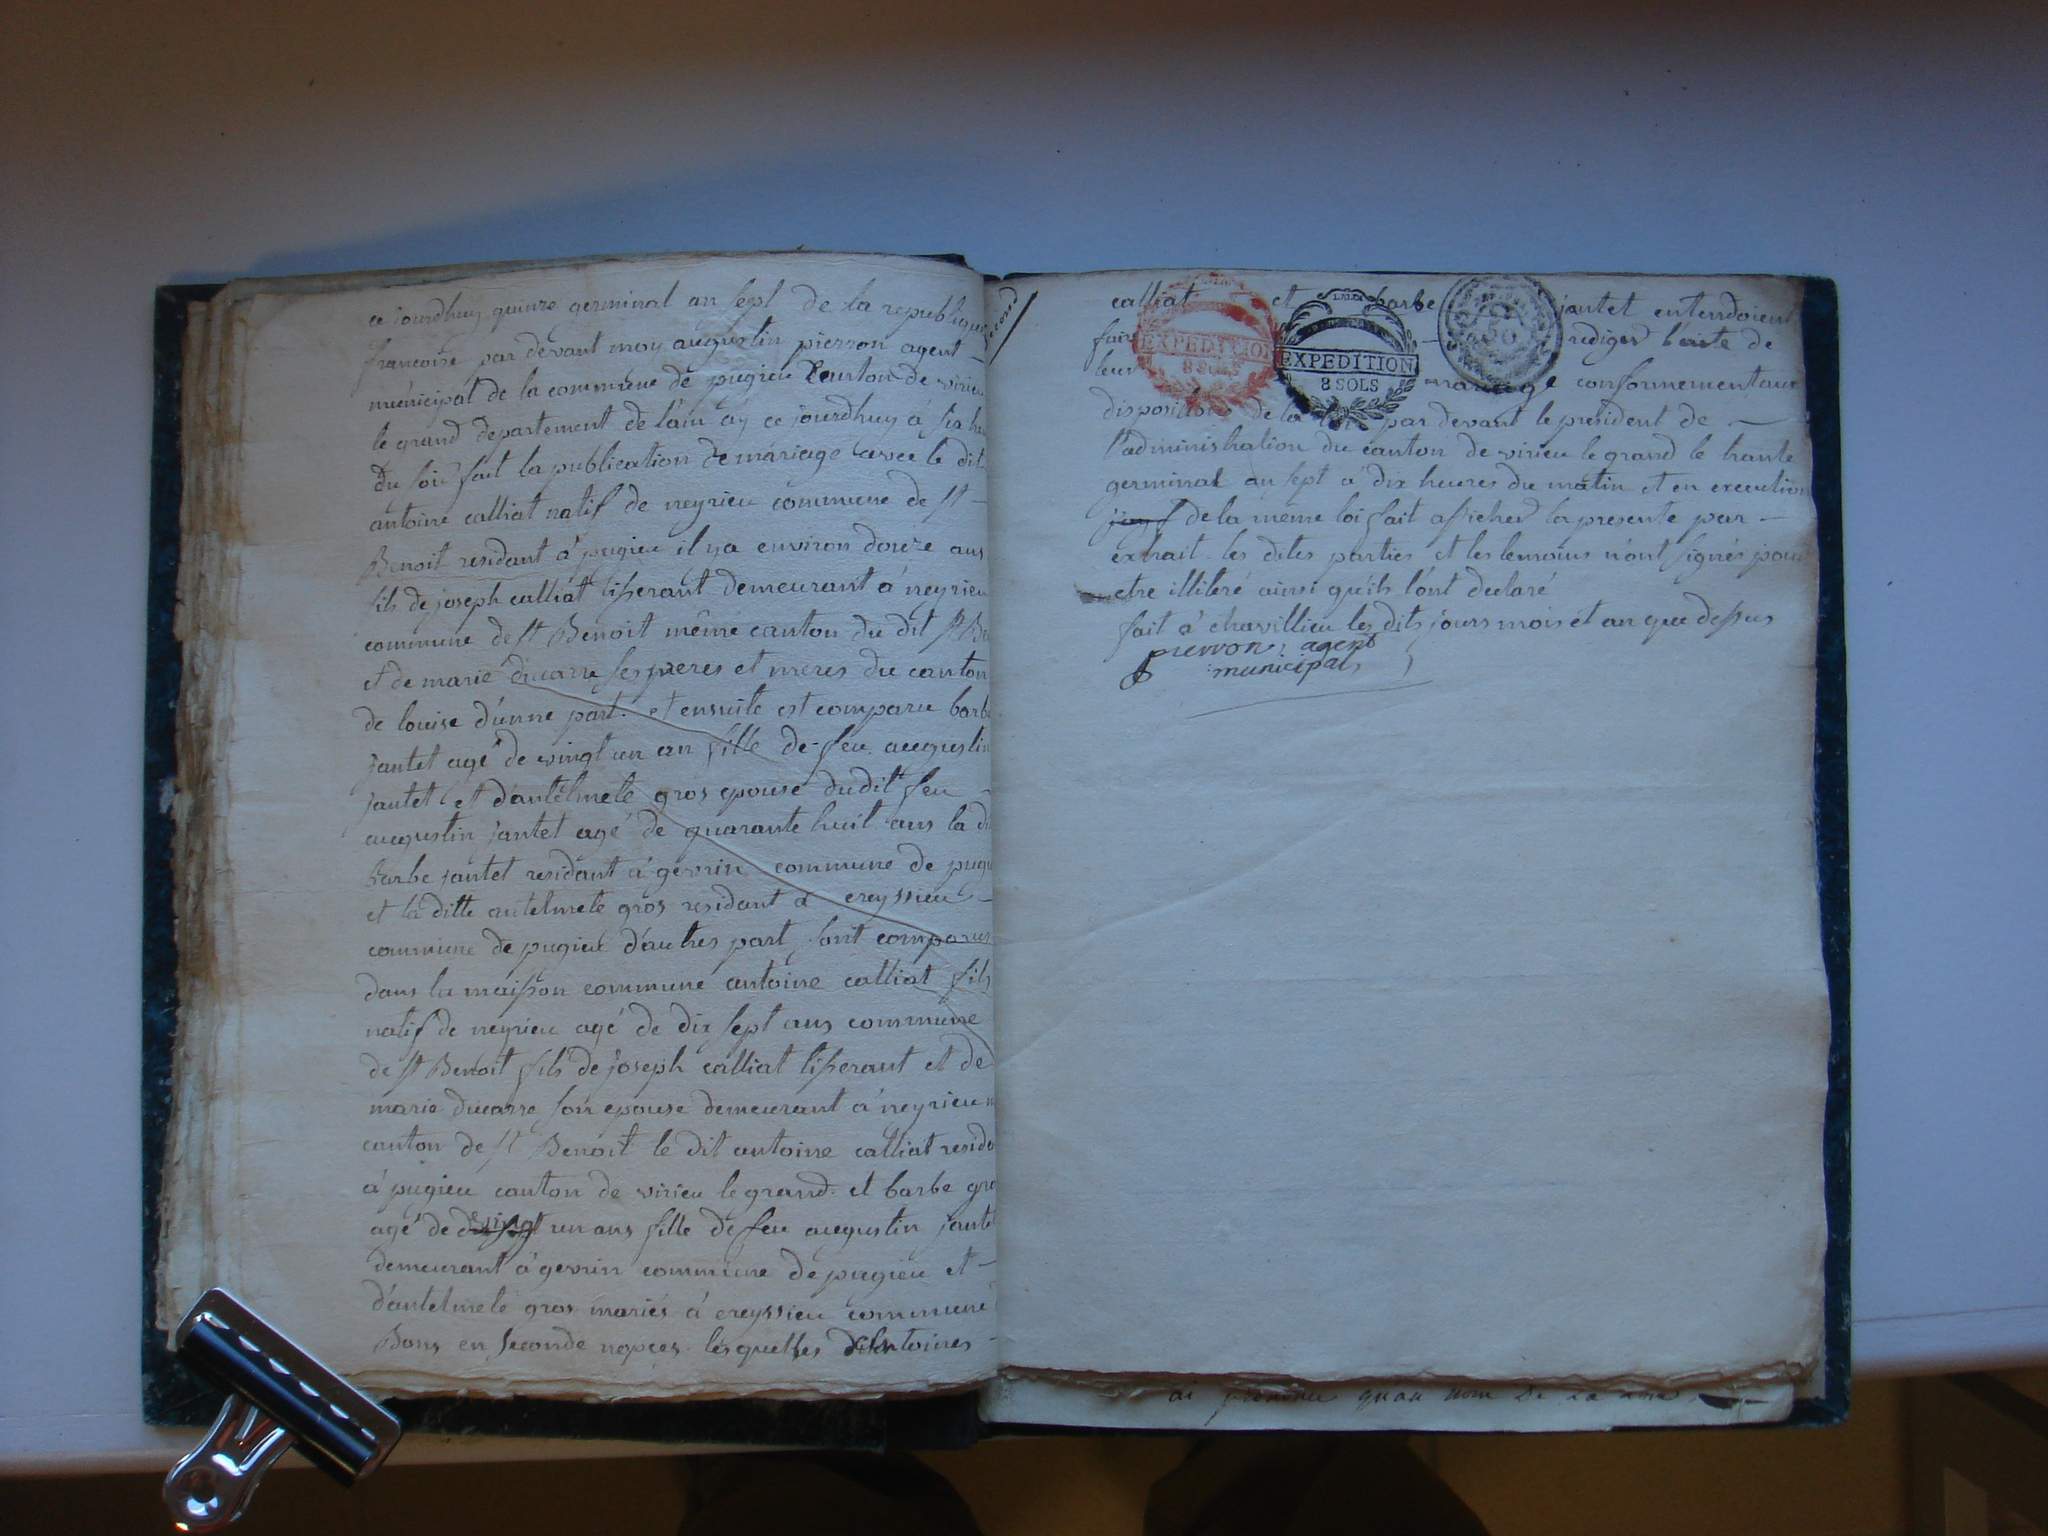 ce jourdhuy quinze germinal an sept de la republique
francoise par devant moy augustin pierron agent
municipal de la commune de pugieu Canton de virieu
le grand departement de lain ay ce jourdhuy á six
du soir fait la publication de máriage avec le dit
antoine calliat natif de neyrieu commune de st
Benoit residant á pugieu il ya environ douze ans
fils de joseph calliat tisserant demeurant á neyrieu
commune de st Benoit même canton du dit st
et de marie ducarre ses peres et meres du canton
de louise dunne part. et ensuite est comparu barbe
jantet agé de vingt un an fille de feu augustin
jantet et dantelmete gros epouse dudit feu
augustin jantet agé de quarante huit ans la
barbe jantet residant á gevrin commune de
et la ditte antelmete gros residant á creyssieu
commune de pugieu dautres part sont comparus
dans la maisson commune antoine calliat fils
natif de neyrieu agé de dix sept ans commune
de st Benoit fils de joseph calliat tisserant et de
marie ducarre son epouse demeurant á neyrieu
canton de st Benoit le dit antoine calliat
á pugieu canton de virieu le grand. et barbe
agé de vingt un ans fille de feu augustin
demeurant á gevrin commune de pugieu et
dantelmete gros mariés á creyssieu commune
Dons en seconde nopces lesquelles
calliat et barbe jantet entendoient
faire rediger lacte de
leur mariage conformement aux
dispositions de la loi par devant le president de
l'administration du canton de virieu le grand le trante
germinal an sept á dix heures du matin et en execution
de la même loi fait afficher la presente par
extrait les dites parties et les temoins n'ont signés pour
etre illiteré ainsi qu'ils l'ont declaré
fait á chavillieu les dits jours mois et an que dessus
pierron agent
municipal
EXPEDITION
8 SOLS
EXPEDITION
8 SOLS